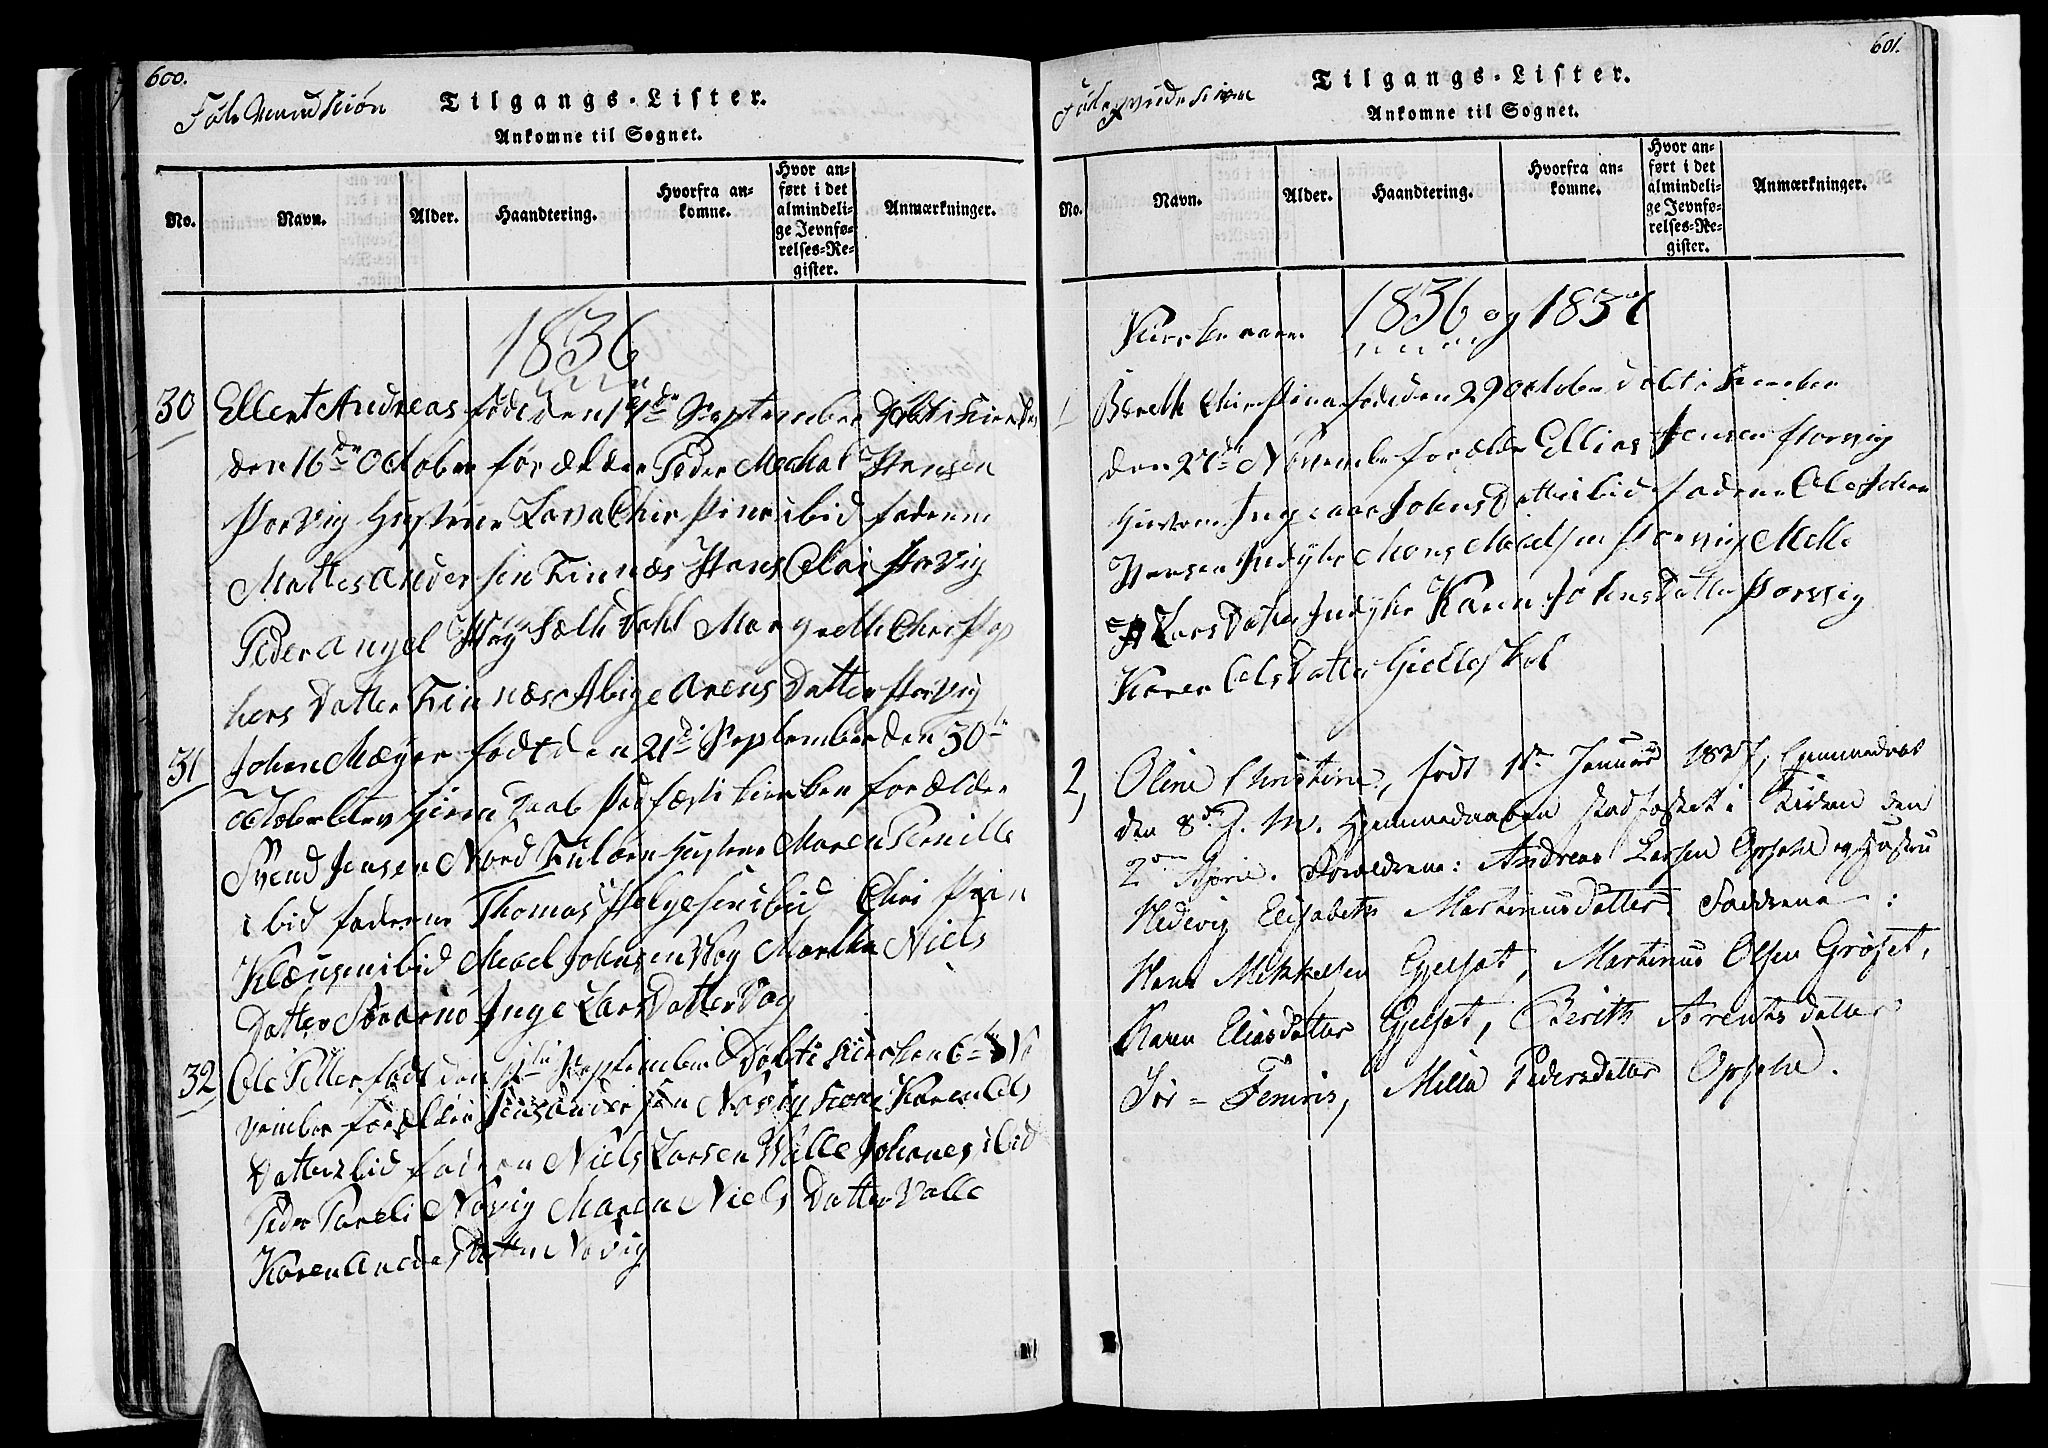 600.
Tilgangs-Lister.
Ankomne til Sognet.
No. Navn. Alder. Haandtering. Hvorfra ankomne. Hvor anført i det almindelige Jevnførelses-Register. Anmærkninger.
1836
30 Ellert Andreas født den September
den 16de October forælder Peder Mechal Hansen
Storvig Hustrue Lava Chirstine ibid faderne
Mattes Andersen Finnæs Hans Olai Storvig
Peder Angel Dahl Margrethe Christop
hers Datter Finnæs Abige Arens Datter Storvig
31 Johan Mæyer født den 21de September den 30te
October blev Hiemdaab Stadfæst i Kierken forælder
Svend Jensen Nord Hustrue Maren Pernille
ibid faderne Thomas Helgesen ibid Christian
Klausen ibid Mechel Johnsen Vog Martha Niels
Datter Inge Lars Datter Vog
32 Ole Petter født den September Døbt i Kirken 6te No
vember forælder Jens Andersen Novig Kone Karen Ols
Datter ibid faderne Niels Larsen Valle Johanes ibid
Peder Pareli Novig Maren Niels Datter Valle
Karen Datter Novig
601.
Tilgangs-Lister.
Ankomne til Sognet.
No. Navn. Alder. Haandtering. Hvorfra ankomne. Hvor anført i det almindelige Jevnførelses-Register. Anmærkninger.
1836 og 1837
1 Bereth Christina født den 29 October døbt i
den 27de November forælder Ellias Jensen Storvig
Hustrue Johns Datter ibid faderne Ole Johan
Hansen Indyhr Mons Storvig Mille
Lars Datter Indyhr Karen Johns Datter Storvig
Karen Ols Datter
2, Oline Christine, født 1ste Januar 1837, hjemmedøbt
den 8de J. M. Hjemmedaaben stadfæstet i Kirken den
2den April. Forældrene: Andreas Larsen og Hustru
Hedevig Elisabeth Martinusdatter. Fadderne:
Hans Mikkelsen Gjelset, Martinus Olsen Grøset,
Karen Eliasdatter Gjelset, Berith Arentsdatter
Sør-Femris, Milla Pedersdatter